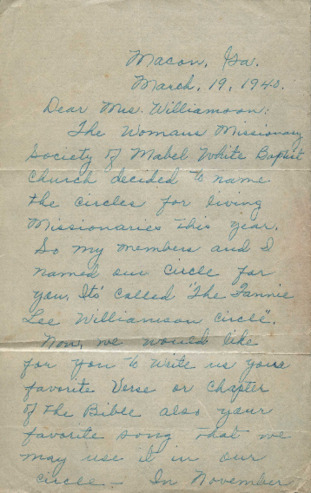 Macon, Ga.
March, 19, 1940.
Dear Mrs. Williamson:
The Womans Missionary
Society of Mabel White Baptist
Church decided to name
the circles for living
Missionaries this year.
So my members and I
named our Circle for
you. Its' called "The Fannie
Lee Williamson Circle".
Now, we would like
for you to write us your
favorite Verse or Chapter
of the Bible also your
favorite song that we
may use it in our
circle. In November